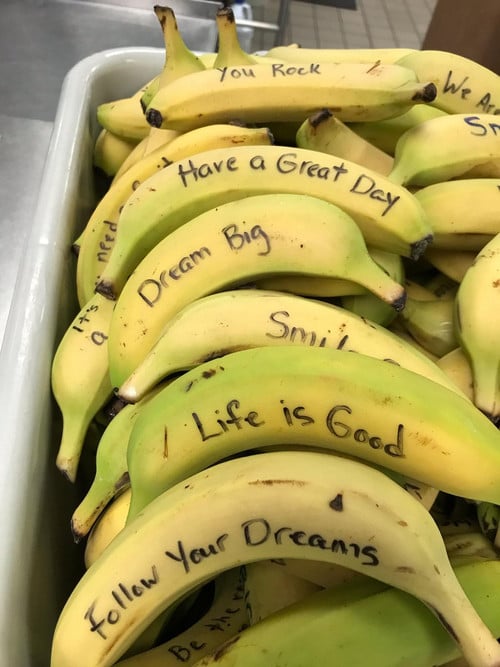 You Rock
We
Have a Great Day
need
Dream Big
it's
a
Life is Good
Follow Your Dreams
Be the